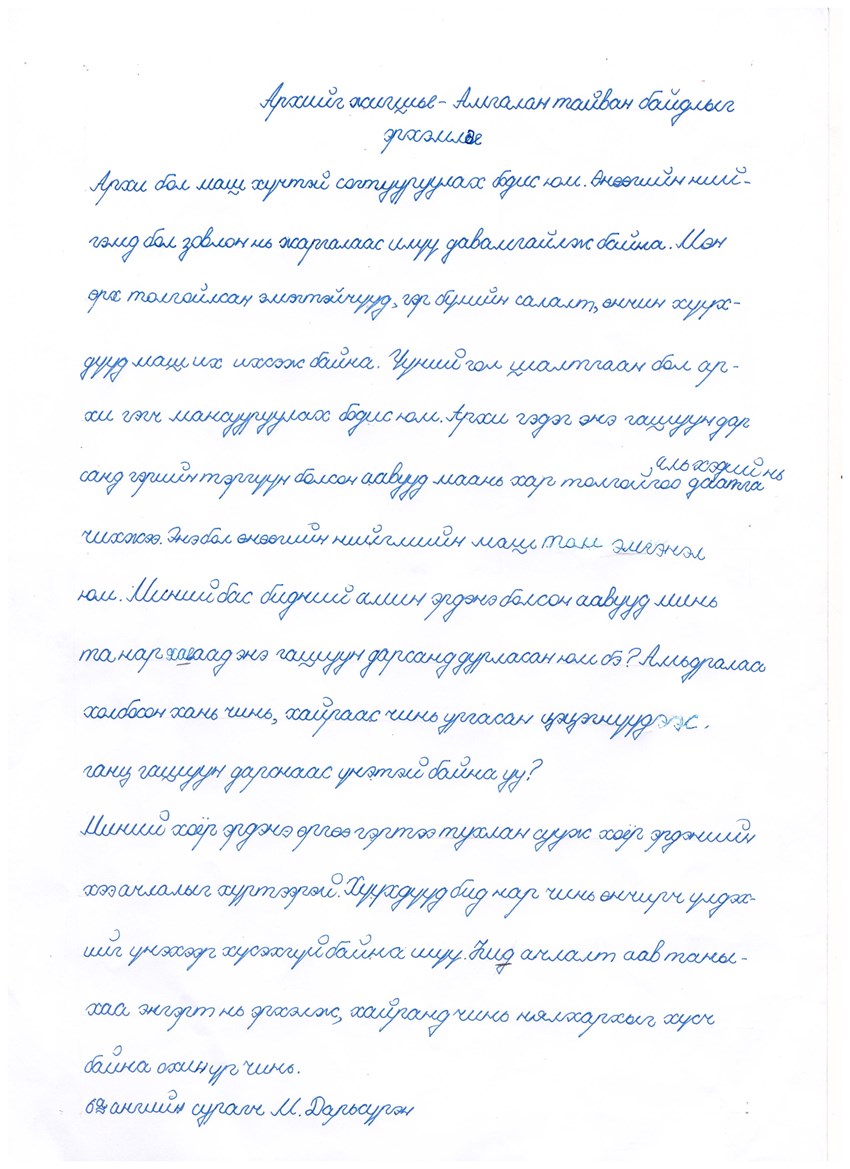 Архийг жигшье - Амгалан тайван байдлыг
эрхэмлэе
Архи бол маш хүчтэй согтууруулах бодис юм. Өнөөгийн ний-
гэмд бол зовлон нь жаргалаас илүү давамгайлж байна. Мөн
өрх толгойлсон эмэгтэйчүүд, гэр бүлийн салалт, өнчин хүүх-
дүүд маш их ихсэж байна. Үүний гол шалтгаан бол ар-
хи гэгч мансууруулах бодис юм. Архи гэдэг энэ гашуун дар
санд гэрийн тэргүүн болсон аавууд маань хар толгойгоо, аль хэдийн нь даатга
чихжээ. Энэ бол өнөөгийн нийгмийн маш том эмгэнэл
юм. Миний бас бидний амин эрдэнэ болсон аавууд минь
та нар яагаад энэ гашуун дарсанд дурласан юм бэ? Амьдралаа
холбосон хань чинь, хайраас чинь ургасан цэцэгнүүд ээж.
ганц гашуун дарснаас үнэтэй байна уу?
Миний хоёр эрдэнэ өргөө гэртээ тухлан сууж хоёр эрдэнийн
хээ ачлалыг хүртээрэй. Хүүхдүүд бид нар чинь өнчирч үлдэх-
ийг үнэхээр хүсэхгүй байна шүү. Бид ачлалт аав таны-
хаа энгэрт нь эрхэлж, хайранд чинь нялхархыг хүсч
байна охин үр чинь.
6 ангийн сурагч М. Дарьсүрэн